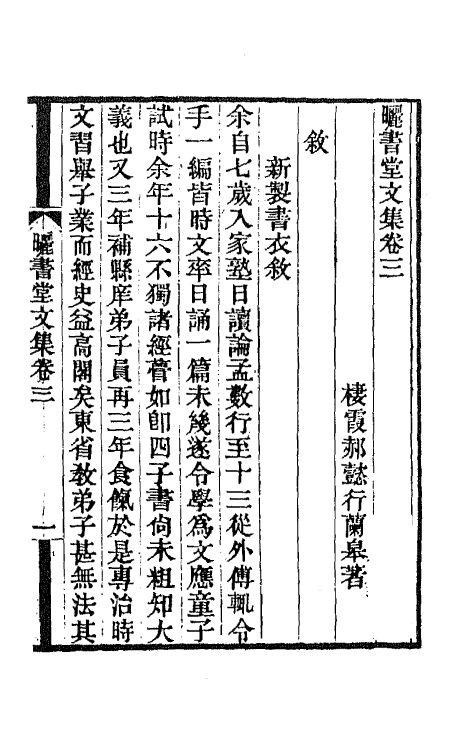 曬書堂文集卷三
棲霞郝懿行蘭皋著
敘
新製書衣敘
余自七歲入家塾日讀論孟數行至十三從外傅輒令
手一編皆時文率日誦一篇未幾遂令學爲文應童子
試時余年十六不獨諸經瞢如卽四子書尙未粗知大
義也又三年補縣庠弟子員再三年食餼於是專治時
文習舉子業而經史益高閣矣東省敎弟子甚無法其
曬書堂文集卷三
一